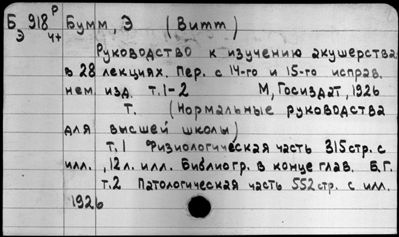 Б 918 Р Бумм, Э (Витт)
Э 4+
Руководство к изучению акушерства
в 28 лекциях. Пер. с 14-го и 15-го исправ.
нем. изд. т.1-2 М, Госиздат, 1926
Т. (Нормальные руководства
для высшей школы)
т.1 Физиологическая часть 315 стр. с
илл., 12 л. илл. Библиогр. в конце глав. Б.Г.
т.2 Патологическая часть 552 стр. с илл.
1926